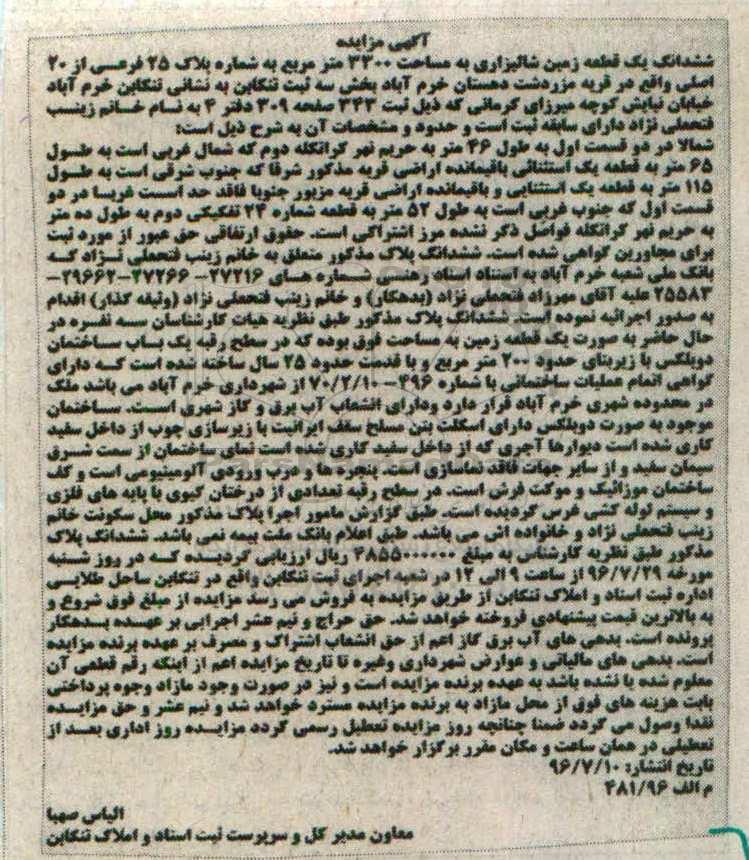 آگهی مزایده
ششدانگ یک قطعه زمین شالیزاری به مساحت ۳۳۰۰ متر مربع به شماره پلاک ۲۵ فرعی از ۲۰
اصلی واقع در قریه مزردشت دهستان خرم آباد بخش سه ثبت تنکابن به نشانی تنکابن خرم آباد
خیابان نیایش کوچه میرزای کرمانی که ذیل ثبت ۳۴۳ صفحه ۳۰۹ دفتر ۴ به نام خانم زینب
فتحعلی نژاد دارای سابقه ثبت است و حدود و مشخصات آن به شرح ذیل است:
شمالا در دو قسمت اول به طول ۴۶ متر به حریم نهر کرانکله دوم که شمال غربی است به طول
۶۵ متر به قطعه یک استثنائی باقیمانده اراضی قریه مذکور شرقا که جنوب شرقی است به طول
۱۱۵ متر به قطعه یک استثنایی و باقیمانده اراضی قریه مزبور جنوبا فاقد حد است غربا در دو
قسمت اول که جنوب غربی است به طول ۵۲ متر به قطعه شماره ۲۴ تفکیکی دوم به طول ده متر
به حریم نهر کرانکله فواصل ذکر نشده مرز اشتراکی است. حقوق ارتفاقی حق عبور از مورد ثبت
برای مجاورین گواهی شده است. ششدانگ پلاک مذکور متعلق به خانم زینب فتحعلی نژاد که
بانک ملی شعبه خرم آباد به استناد اسناد رهنی شماره های ۲۷۲۱۶- ۲۷۲۶۶-۲۹۶۶۲-
۲۵۵۸۳ علیه آقای مهرزاد فتحعلی نژاد (بدهکار) و خانم زینب فتحعلی نژاد (وثیقه گذار) اقدام
به صدور اجرائیه نموده است. ششدانگ پلاک مذکور طبق نظریه هیات کارشناسان سه نفره در
حال حاضر به صورت یک قطعه زمین به مساحت فوق بوده که در سطح رقبه یک باب ساختمان
دوبلکس با زیربنای حدود ۲۰۰ متر مربع و با قدمت حدود ۲۵ سال ساخته شده است که دارای
گواهی اتمام عملیات ساختمانی با شماره ۴۹۶- ۷۰/۲/۱۰ از شهرداری خرم آباد می باشد ملک
در محدوده شهری خرم آباد قرار دارد ودارای انشعاب آب برق و گاز شهری است. ساختمان
موجود به صورت دوبلکس دارای اسکلت بتن مسلح سقف ایرانیت با زیرسازی چوب از داخل سفید
کاری شده است دیوارها آجری که از داخل سفید کاری شده است نمای ساختمان از سمت شرق
سیمان سفید و از سایر جهات فاقد نماسازی است. پنجره ها و درب ورودی آلومینیومی است و کف
ساختمان موزائیک و موکت فرش است. در سطح رقبه تعدادی از درختان کیوی با پایه های فلزی
و سیستم لوله کشی غرس گردیده است. طبق گزارش مامور اجرا پلاک مذکور محل سکونت خانم
زینب فتحعلی نژاد و خانواده اش می باشد. طبق اعلام بانک ملت بیمه نمی باشد. ششدانگ پلاک
مذکور طبق نظریه کارشناس به مبلغ ۴۸۵۵۰۰۰۰۰۰ ریال ارزیابی گردیده که در روز شنبه
مورخه ۹۶/۷/۲۹ از ساعت ۹ الی ۱۲ در شعبه اجرای ثبت تنکابن واقع در تنکابن ساحل طلایی
اداره ثبت اسناد و املاک تنکابن از طریق مزایده به فروش می رسد مزایده از مبلغ فوق شروع و
به بالاترین قیمت پیشنهادی فروخته خواهد شد. حق حراج و نیم عشر اجرایی بر عهده بدهکار
پرونده است. بدهی های آب برق گاز اعم از حق انشعاب اشتراک و مصرف بر عهده برنده مزایده
است. بدهی های مالیاتی و عوارض شهرداری وغیره تا تاریخ مزایده اعم از اینکه رقم قطعی آن
معلوم شده یا نشده باشد به عهده برنده مزایده است و نیز در صورت وجود مازاد وجوه پرداختی
بابت هزینه های فوق از محل مازاد به برنده مزایده مسترد خواهد شد و نیم عشر و حق مزایده
نقدا وصول می گردد ضمنا چنانچه روز مزایده تعطیل رسمی گردد مزایده روز اداری بعد از
تعطیلی در همان ساعت و مکان مقرر برگزار خواهد شد.
تاریخ انتشار: ۹۶/۷/۱۰
م الف ۴۸۱/۹۶
الیاس صهبا
معاون مدیر کل و سرپرست ثبت اسناد و املاک تنکابن